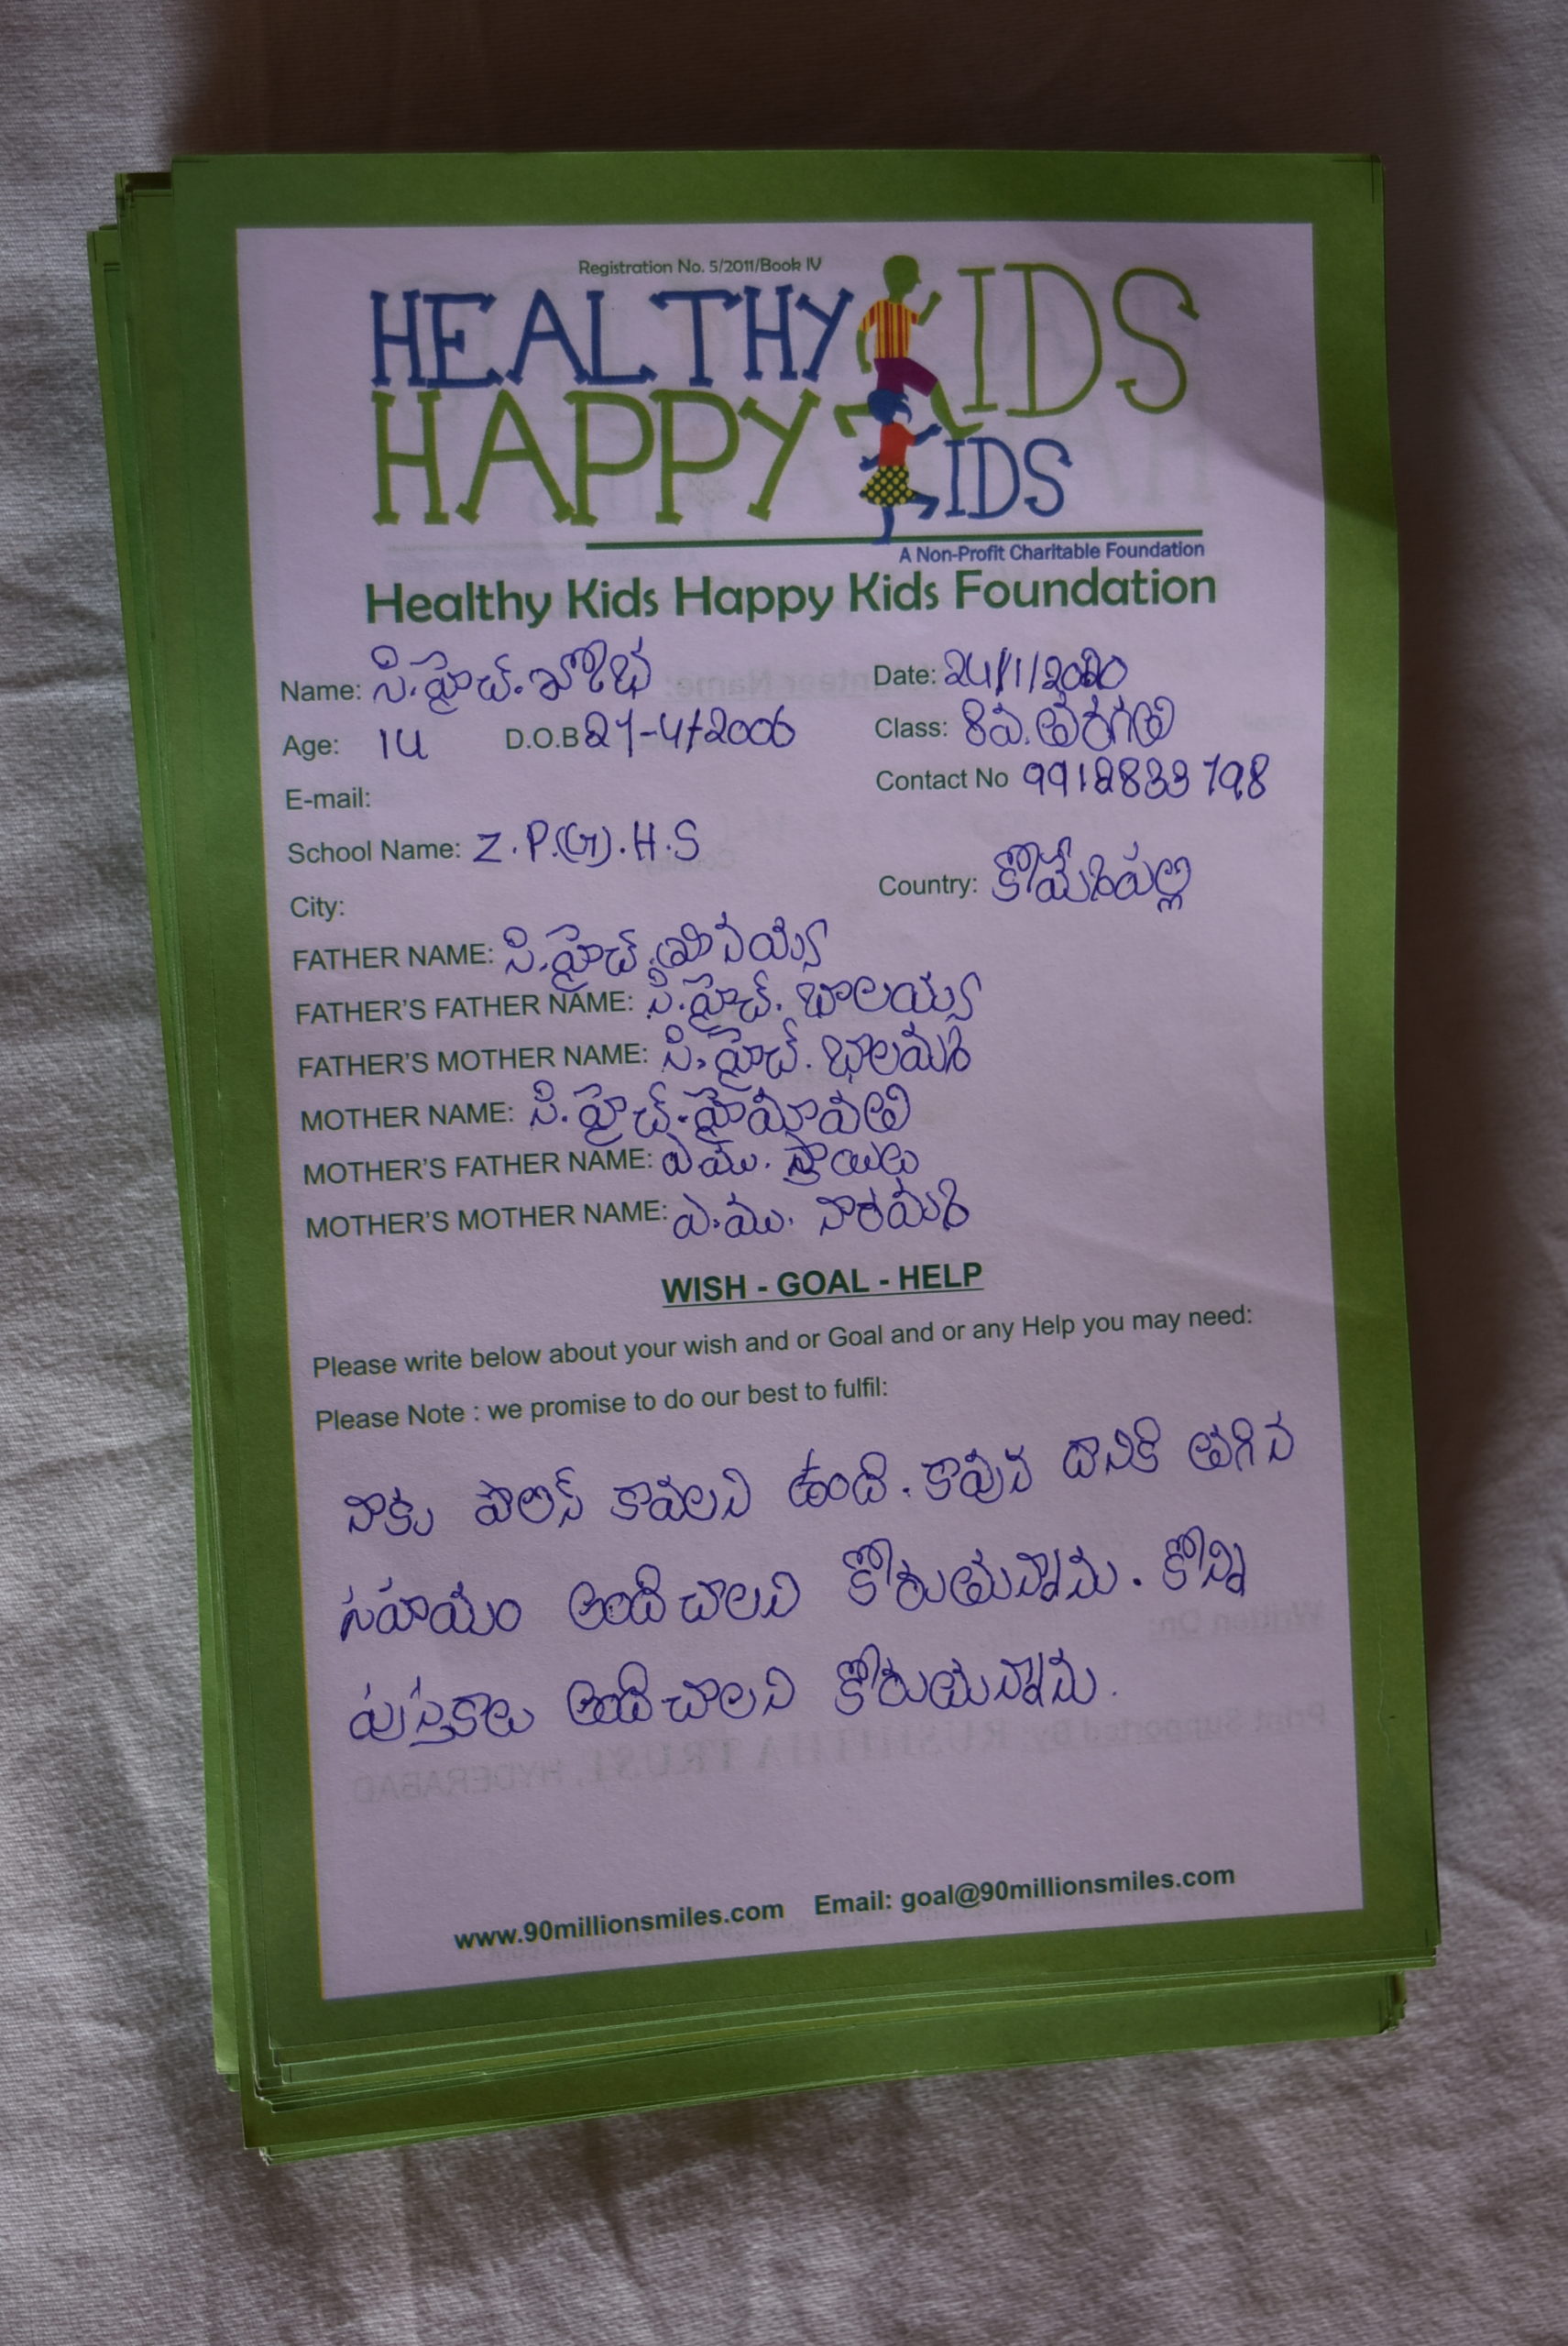 Registration No. 5/2011/Book IV
HEALTHY KIDS
HAPPY KIDS
A Non-Profit Charitable Foundation
Healthy Kids Happy Kids Foundation
Name: సి.హైచ్. Date: 24/1/2020
Age: 14 D.O.B 27-4-2006 Class: 8వ.తరగతి
E-mail: Contact No 9912833798
School Name: Z.P.(G).H.S
City: Country: కొమేరిపల్లి
FATHER NAME: సి.హైచ్.
FATHER'S FATHER NAME: సి.హైచ్. బాలయ్య
FATHER'S MOTHER NAME: సి.హైచ్. భాలమణి
MOTHER NAME: సి.హైచ్.హైమావతి
MOTHER'S FATHER NAME: ఎ.ము.
MOTHER'S MOTHER NAME: ఎ.ము.
WISH - GOAL - HELP
Please write below about your wish and or Goal and or any Help you may need:
Please Note : we promise to do our best to fulfil:
నాకు పొలిస్ కావలని ఉంది. కావున దానికి తగిన
సహయం అందిచాలని కోరుతున్నాను. కొన్ని
పుస్తకాలు అందిచాలని కోరుతున్నాను.
www.90millionsmiles.com Email: goal@90millionsmiles.com